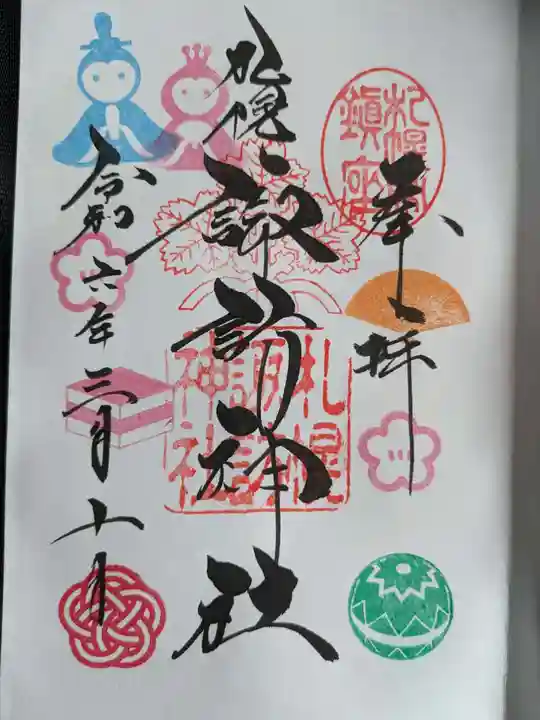 奉拝
札幌
諏訪神社
令和六年三月十日
札幌
諏訪
神社